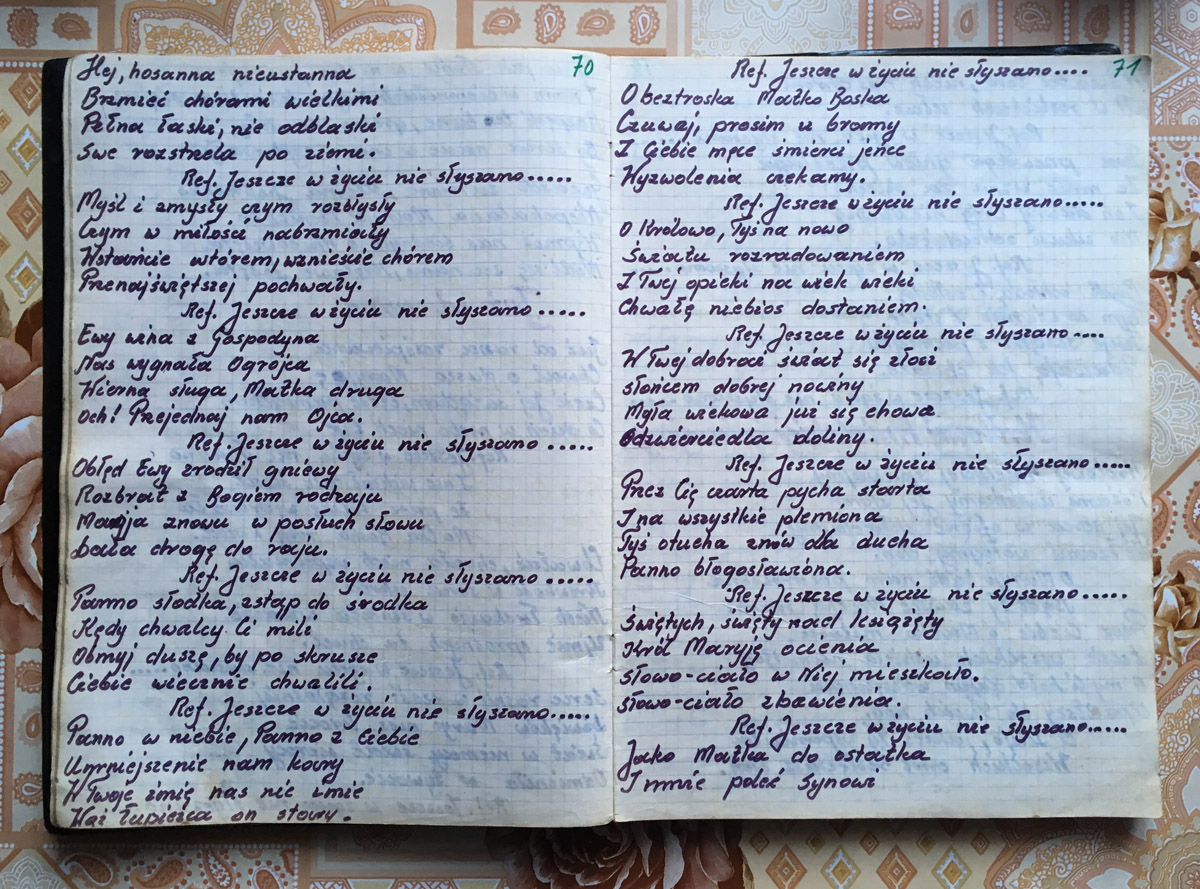 70
Hej, hosanna nieustanna
Brzmieć chórami wielkimi
Pełna łaski, nie odblaski
Swe rozstrzela po ziemi.
Ref. Jeszcze w życiu nie słyszano.....
Myśl i zmysły czym rozbłysły
Czym w miłości nabrzmiały
Wstańcie wtórem, wznieście chórem
Przenajświętszej pochwały.
Ref. Jeszcze w życiu nie słyszano.....
Ewy wina z Gospodyna
Nas wygnała Ogrójca
Wierna sługa, Matka druga
Och! Przejednaj nam Ojca.
Ref. Jeszcze w życiu nie słyszano.....
Obłęd Ewy zrodził gniewy
Rozbrat z Bogiem rodzaju
Maryja znowu w posłuch słowu
Dała drogę do raju.
Ref. Jeszcze w życiu nie słyszano.....
Panno słodka, zstąp do środka
Kędy chwalcy Ci mili
Obmyj duszę, by po skrusze
Ciebie wiecznie chwalili.
Ref. Jeszcze w życiu nie słyszano.....
Panno w niebie, Panno z Ciebie
Umniejszenie nam kary
W Twoje imię nas nie imie
Wąż łupieżca on stary.
71
Ref. Jeszcze w życiu nie słyszano....
O beztroska Matko Boska
Czuwaj, prosim u bramy
I Ciebie męce śmierci jeńce
Wyzwolenia czekamy.
Ref. Jeszcze w życiu nie słyszano.....
O Królowo, Tyś na nowo
Światu rozradowaniem
I Twej opieki na wiek wieki
Chwałę niebios dostaniem.
Ref. Jeszcze w życiu nie słyszano....
W Twej dobroci świat się złoci
słońcem dobrej nowiny
Mgła wiekowa już się chowa
Odzwierciedla doliny.
Ref. Jeszcze w życiu nie słyszano.....
Przez Cię czarta pycha starta
I na wszystkie plemiona
Tyś otucha znów dla ducha
Panno błogosławiona.
Ref. Jeszcze w życiu nie słyszano.....
Świętych, święty nad książęty
Król Maryję ocienia
słowo-ciało w Niej mieszkało.
słowo-ciało zbawienia.
Ref. Jeszcze w życiu nie słyszano.....
Jako Matka do ostatka
I mnie poleć Synowi